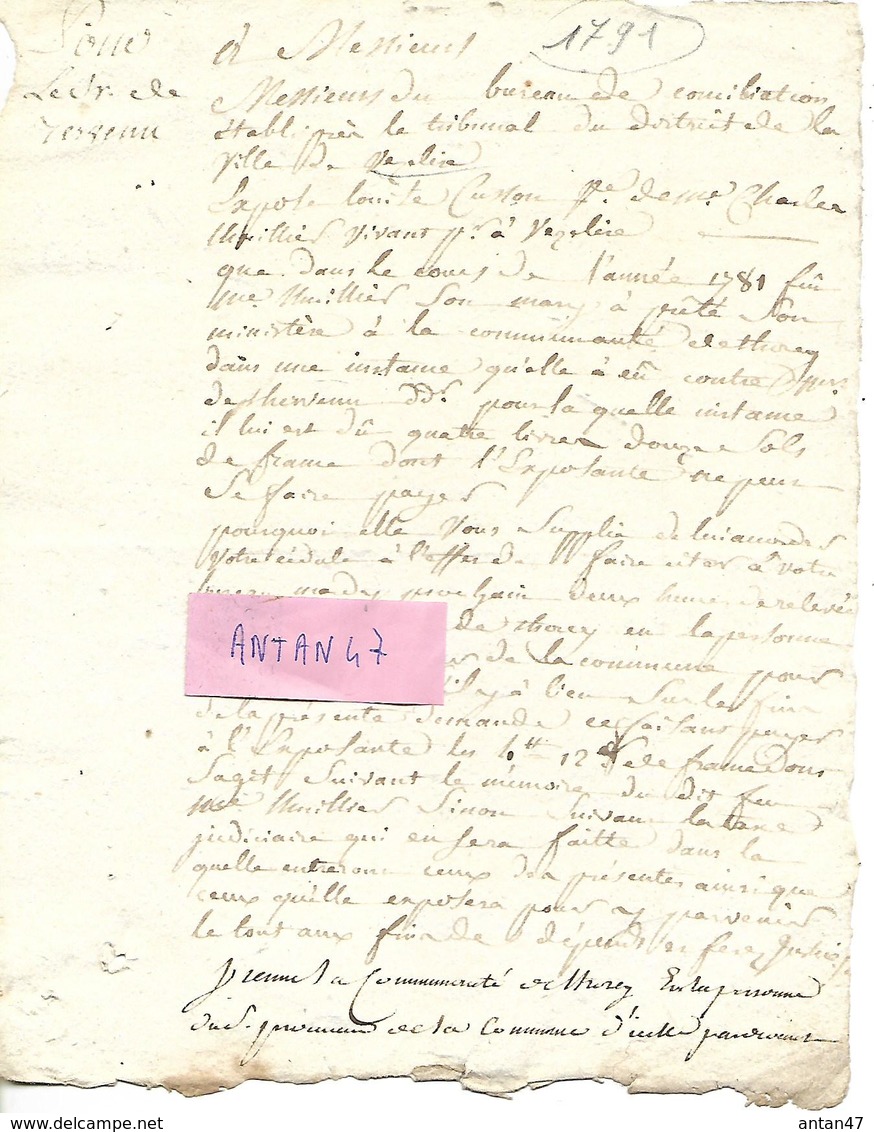 1791
Pour
Le Sr. de
A Messieurs
Messieurs du bureau de conciliation
établi près le tribunal du district de la
ville de
Expose Cusson de Me. Charles
vivant pr. à Vezelise
que dans le cours de l'année 1781 fûe
Me. Thuillier son mary à prêté son
ministère à la communauté de thorey
dans une instance qu'elle à eû contre
pour la quelle instance
il lui est dû quatre livres douze sols
de france dont l'Exposante ne peut
se faire payer
pourquoi elle vous supplie de lui accorder
votre cédule à l'effet de faire citer à votre
prochain deux heures de relevée
de thorey en la personne
de la commune pour
à lieu sur les fins
de la présente demande ce faisant payer
à l'Exposante les 4tt 12 s de france dont
sagit suivant le mémoire du dit feu
Me Thuillier sinon suivant la taxe
judiciaire qui en sera faitte dans la
quelle entreront ceux des présentes ainsi que
ceux qu'elle exposera pour y parvenir
le tout aux fins de dépends
la Communauté de thorey En la personne
de la Commune d'icelle
ANTAN47
antan47